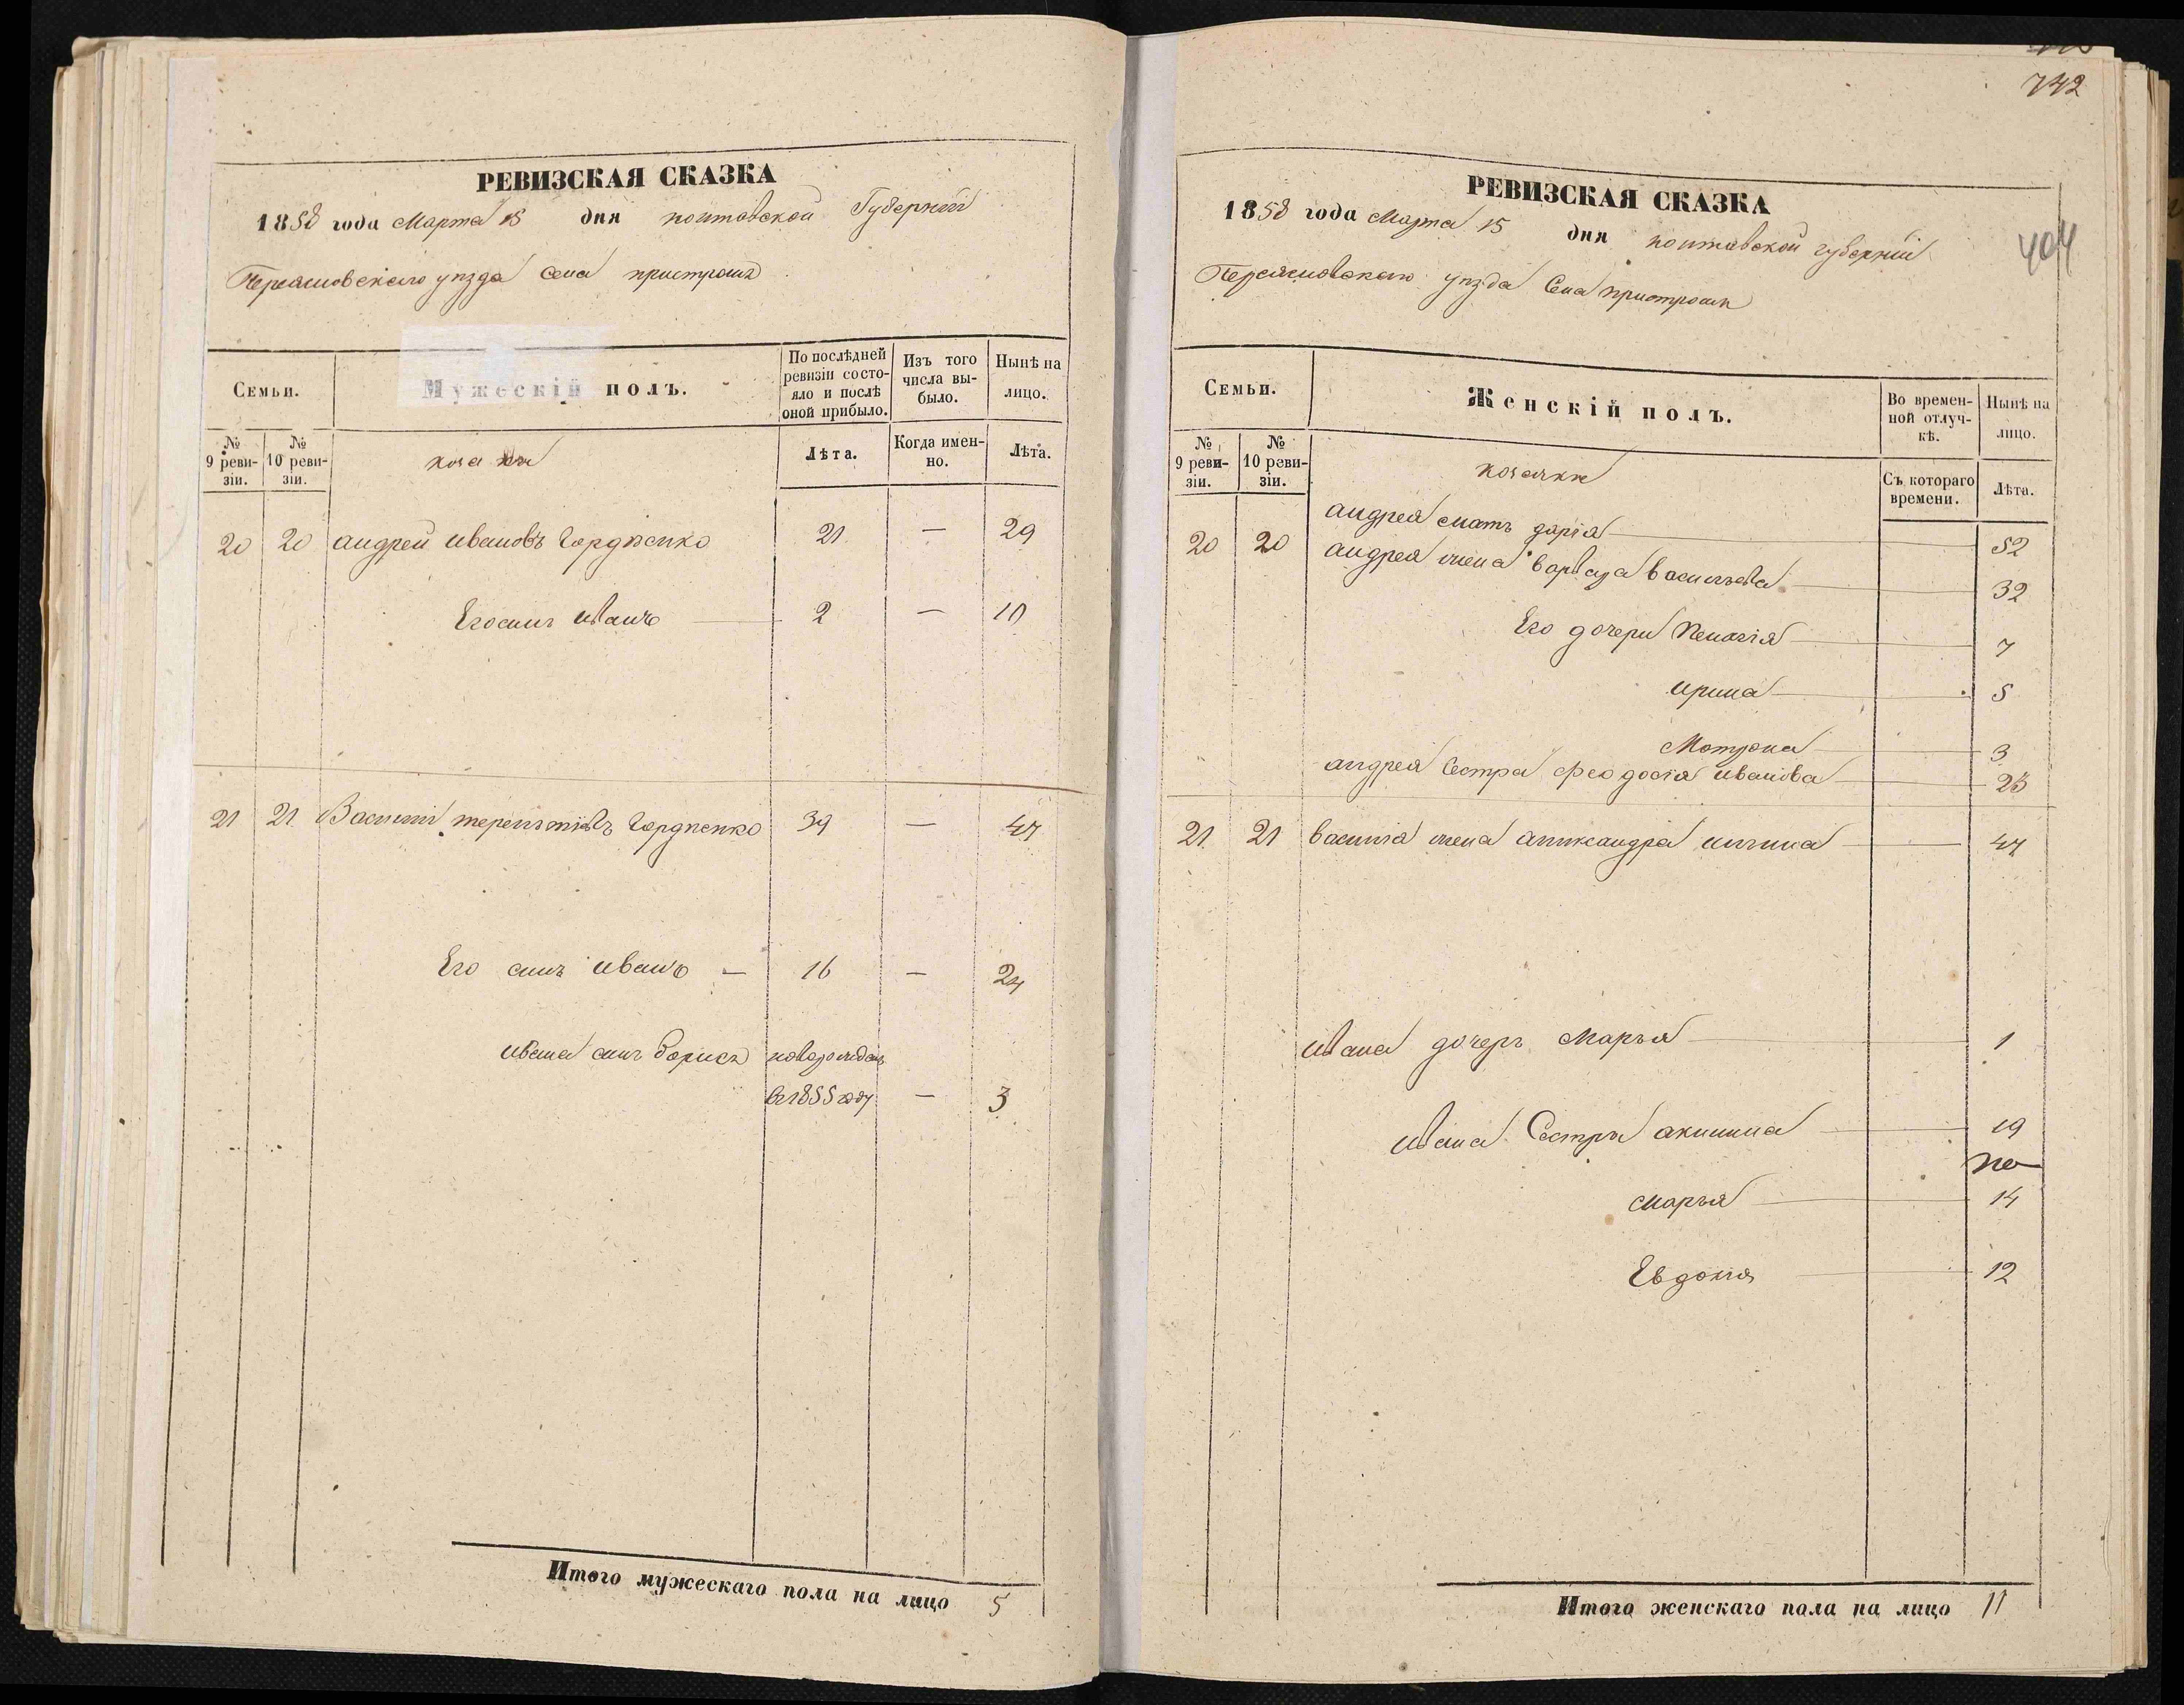 РЕВИЗСКАЯ СКАЗКА
1858 года Марта 15 дня полтавской Губернии
Переяславского уезда Села пристром
Семьи.
Мужескій полъ.
По послѣдней ревизіи состояло и послѣ оной прибыло.
Изъ того числа выбыло.
Нынѣ на лицо.
№ 9 ревизіи.
№ 10 ревизіи.
козаки
Лѣта.
Когда именно.
Лѣта.
20 20 андрей ивановъ Гордѣенко 21 — 29
Его синъ иванъ 2 — 10
21 21 Василий терентиевъ Гордѣенко 39 — 47
Его синъ иванъ — 16 — 24
ивана синъ борисъ новорожденъ
въ 1855 году — 3
Итого мужескаго пола на лицо 5
742
404
РЕВИЗСКАЯ СКАЗКА
1858 года Марта 15 дня полтавской губернии
Переяславского уезда Села
Семьи.
Женскій полъ.
Во временной отлучкѣ.
Нынѣ на лицо.
№ 9 ревизіи.
№ 10 ревизіи.
козачки
Съ котораго времени.
Лѣта.
20 20 андрея мать дарія 52
андрея жена варвара васильева 32
Его дочери Пелагія 7
ирина 5
Мотрона 3
андрея Сестра феодосія иванова 23
21 21 василия жена александра 47
ивана дочерь Марья 1
ивана Сестры акилина 19
марья 14
Евдокия 12
Итого женскаго пола на лицо 11